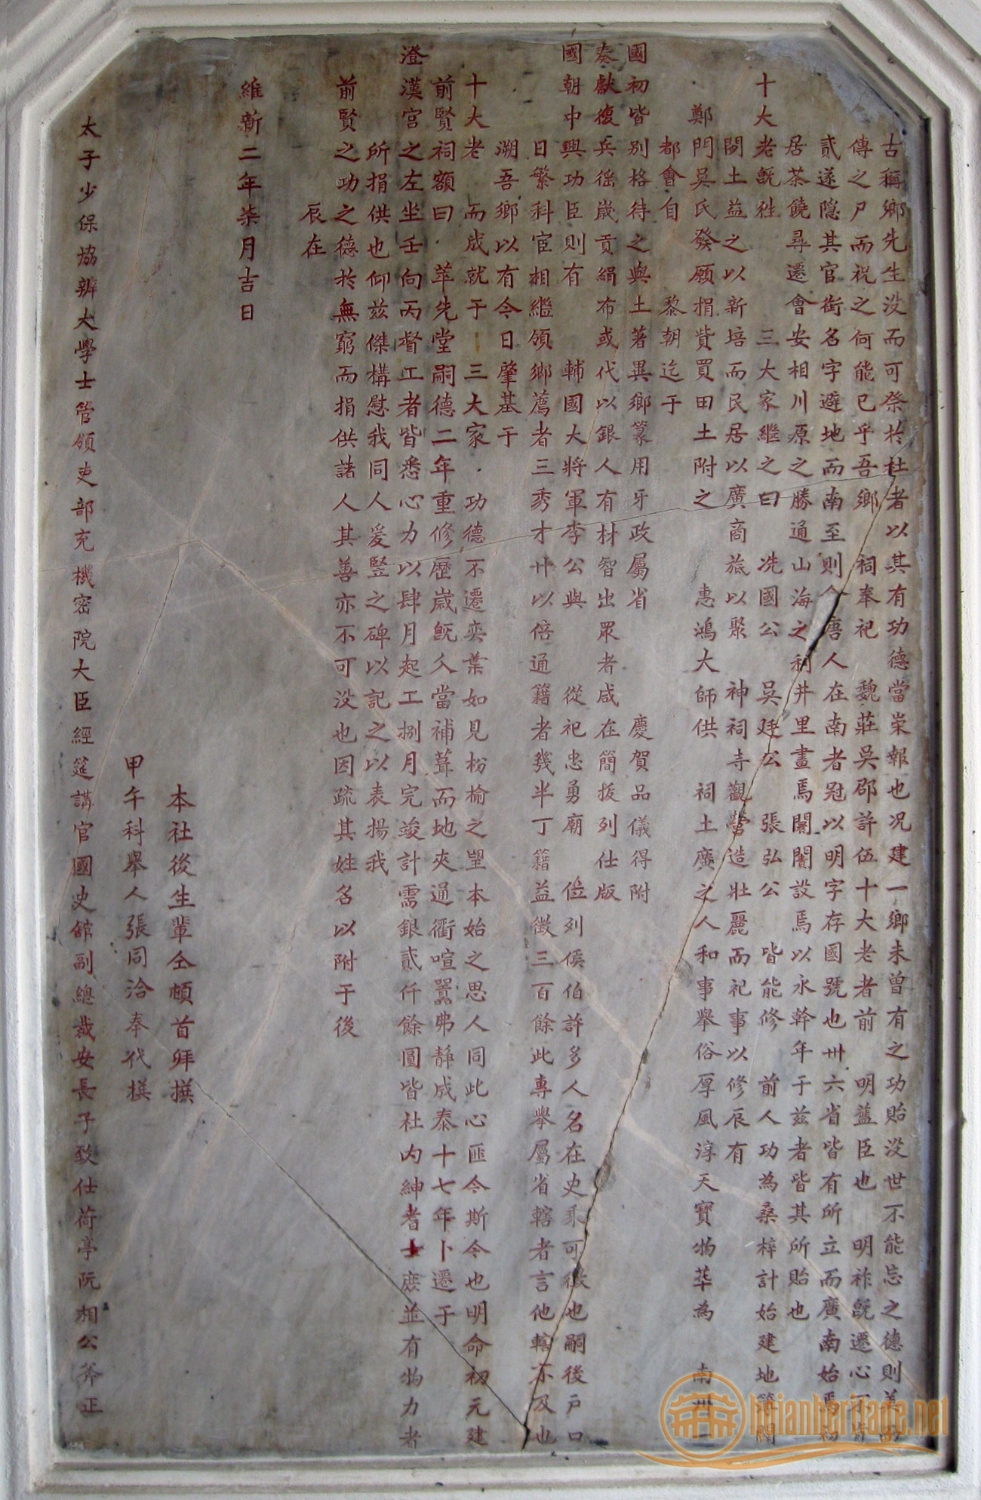 古稱鄉先生没而可祭於社者以其有功德當崇報也况建一鄉未曾有之功貽没世不能忘之德則
傳之尸而祝之何能已乎吾鄉 祠奉祀 魏莊吳邵許伍十大老者前 明藎臣也 明祚既遷心不
貳遂隱其官銜名字避地而南至則會唐人在南者冠以明字存國號也卅六省皆有所立而廣南始焉
居茶饒尋遷會安相川原之勝通山海之利井里畫焉闤闠設焉以永幹年于茲者皆其所貽也
十大老既往 三大家繼之曰 冼國公 吳廷公 張弘公 皆能修 前人功為桑梓計始建地簿
閱土益之以新培而民居以廣商旅以聚 神祠寺觀營造壯麗而祀事以修辰有
鄭門吳氏發願捐貲買田土附之 惠鴻大師供 祠土廣之人和事舉俗厚風淳天寶物華為 南州一
都會自 黎朝迄于
國初皆別格待之與土著異鄉篆用牙政屬省 慶賀品儀得附
奏獻復兵徭歲貢絹布或代以銀人有材智出眾者咸在簡拔列仕版
國朝中興功臣則有 輔國大將軍李公與 從祀忠勇廟 位列侯伯許多人名在史乘可徵也嗣後戶口
日繁科宦相繼領鄉薦者三秀才廾以倍通籍者幾半丁籍益徵三百餘此專舉屬省轄者言他轄不及也
溯吾鄉以有今日肇基于
十大老 而成就于 三大家 功德不遷奕葉如見枌榆之里本始之思人同此心匪今斯今也明命初元建
前賢祠額曰 萃先堂嗣德二年重修歷歲既久當補葺而地夾通衢喧囂弗靜成泰十七年卜遷于
澄漢宮之左坐壬向丙督工者皆悉心力以肆月起工捌月完竣計需銀貳仟餘圓皆社內紳耆士庶並有物力者
所捐供也仰茲傑構慰我同人爰豎之碑以記之以表揚我
前賢之功之德於無窮而捐供諸人其善亦不可没也因疏其姓名以附于後
辰在
維新二年柒月吉日
本社後生輩仝頓首拜撰
甲午科舉人張同洽奉代撰
太子少保協辦大學士管領吏部充機密院大臣經筵講官國史館副總裁安長子致仕荷亭阮相公斧正
hoianheritage.net